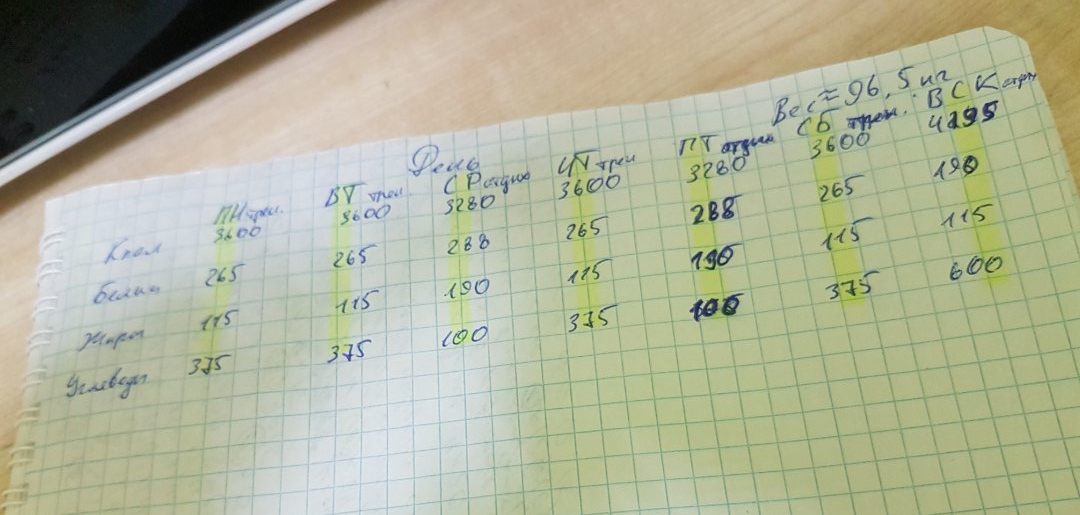 Вес ≈ 96,5 кг
День
ПН трен. ВТ трен. СР отдых ЧТ трен ПТ отдых СБ трен. ВС Карт
Ккал 3600 3600 3280 3600 3280 3600 4195
Белки 265 265 288 265 288 265 190
Жиры 115 115 190 115 190 115 115
Углеводы 375 375 100 375 100 375 600